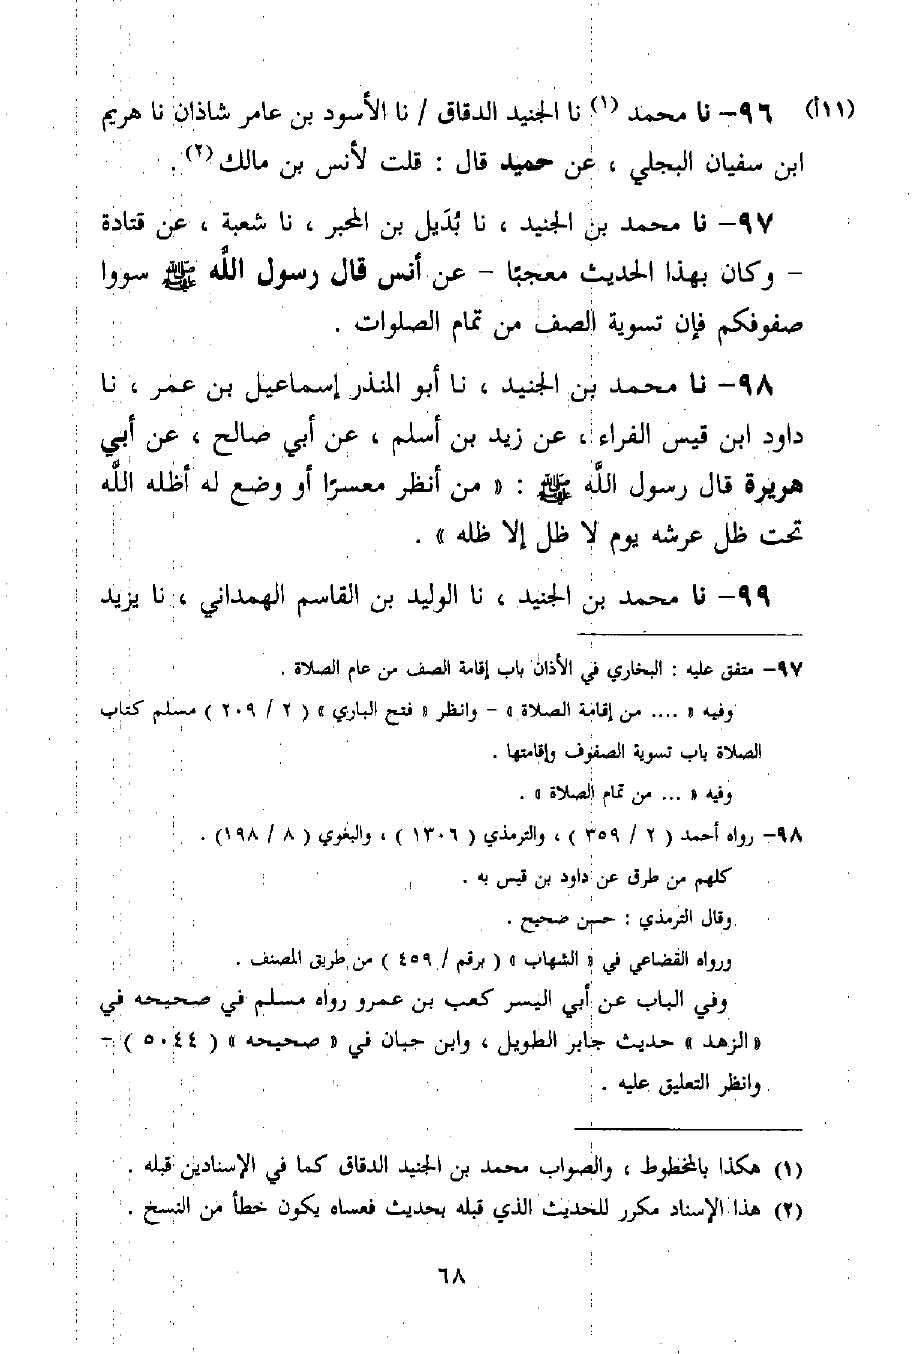 (١١أ) ٩٦– نا محمد (١) نا الجنيد الدقاق / نا الأسود بن عامر شاذان نا هريم
ابن سفيان البجلي ، عن حميد قال : قلت لأنس بن مالك (٢) .
٩٧– نا محمد بن الجنيد ، نا بُدَيل بن المحبر ، نا شعبة ، عن قتادة
– وكان بهذا الحديث معجبًا – عن أنس قال رسول اللَّه ﷺ سووا
صفوفكم فإن تسوية الصف من تمام الصلوات .
٩٨– نا محمد بن الجنيد ، نا أبو المنذر إسماعيل بن عمر ، نا
داود ابن قيس الفراء ، عن زيد بن أسلم ، عن أبي صالح ، عن أبي
هريرة قال رسول اللَّه ﷺ : « من أنظر معسرًا أو وضع له أظله اللَّه
تحت ظل عرشه يوم لا ظل إلا ظله » .
٩٩– نا محمد بن الجنيد ، نا الوليد بن القاسم الهمداني ، نا يزيد
٩٧– متفق عليه : البخاري في الأذان باب إقامة الصف من عام الصلاة .
وفيه « .... من إقامة الصلاة » – وانظر « فتح الباري » ( ٢ / ٢٠٩ ) مسلم كتاب
الصلاة باب تسوية الصفوف وإقامتها .
وفيه « ... من تمام الصلاة » .
٩٨– رواه أحمد ( ٢ / ٣٥٩ ) ، والترمذي ( ١٣٠٦ ) ، والبغوي ( ٨ / ١٩٨) .
كلهم من طرق عن داود بن قيس به .
وقال الترمذي : حسن صحيح .
ورواه القضاعي في « الشهاب » ( برقم / ٤٥٩ ) من طريق المصنف .
وفي الباب عن أبي اليسر كعب بن عمرو رواه مسلم في صحيحه في
« الزهد » حديث جابر الطويل ، وابن حبان في « صحيحه » ( ٥٠٤٤ ) –
وانظر التعليق عليه .
(١) هكذا بالمخطوط ، والصواب محمد بن الجنيد الدقاق كما في الإسنادين قبله .
(٢) هذا الإسناد مكرر للحديث الذي قبله بحديث فعساه يكون خطأ من النسخ .
٦٨